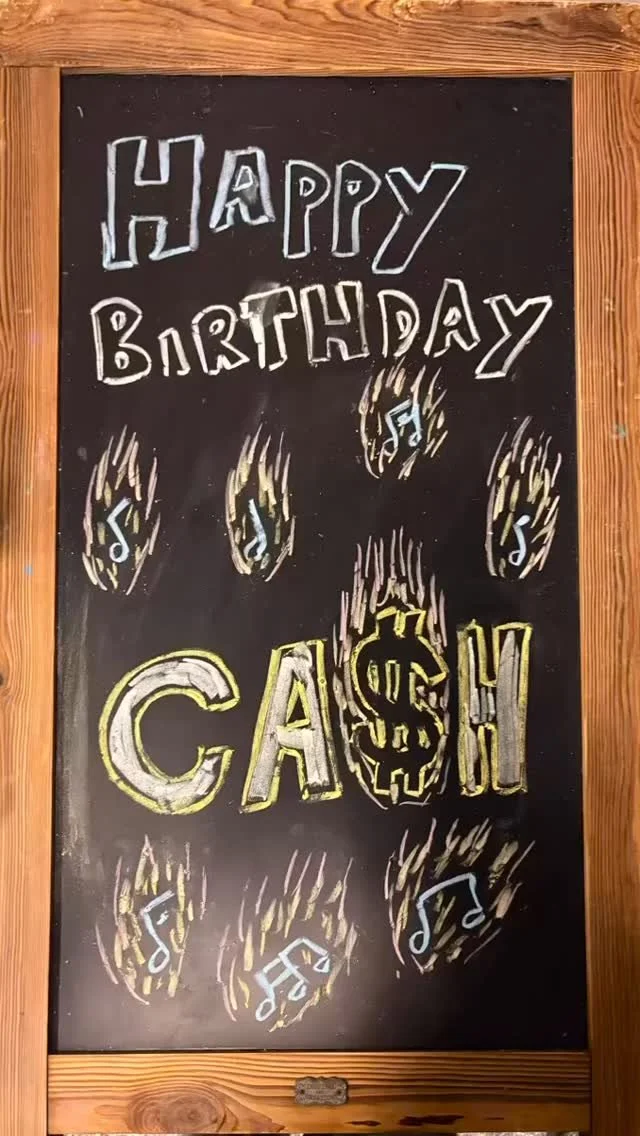 HAPPY
BIRTHDAY
CA$H